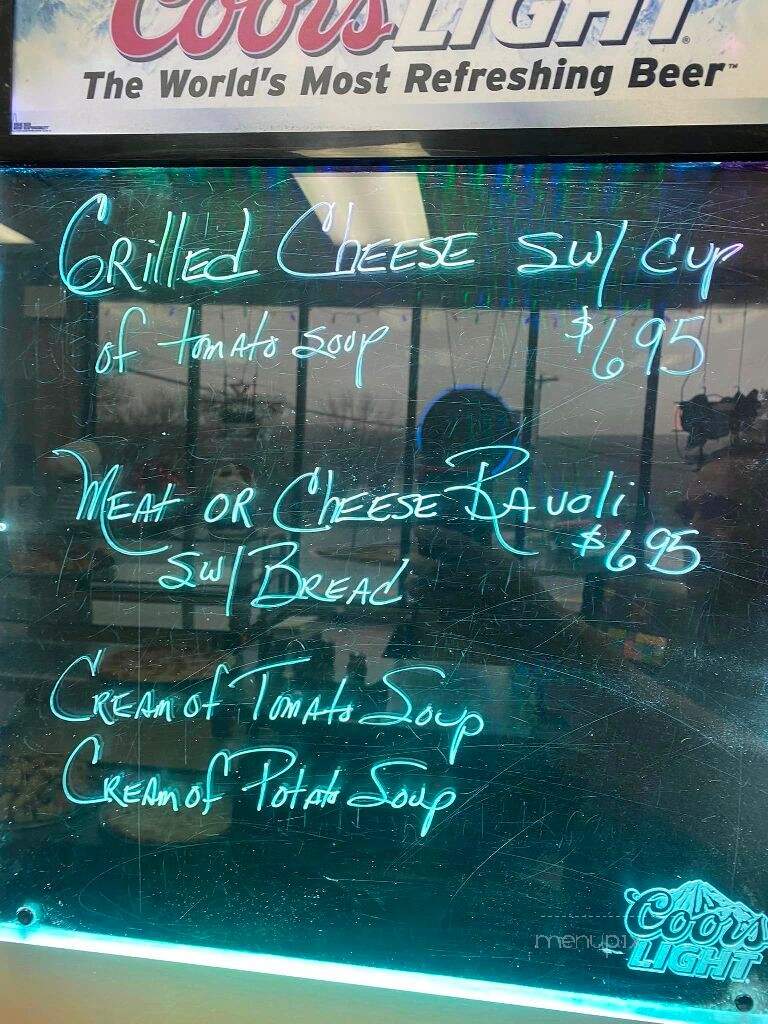 Coors LIGHT
The World's Most Refreshing Beer™
GRillEd ChEESE sw/ cup
of tomAto soup $695
MEAt OR ChEESE RAvoli
$695
sw/ BREAd
CREAm of TomAto Soup
CREAm of PotAto Soup
menupix
Coors
LIGHT